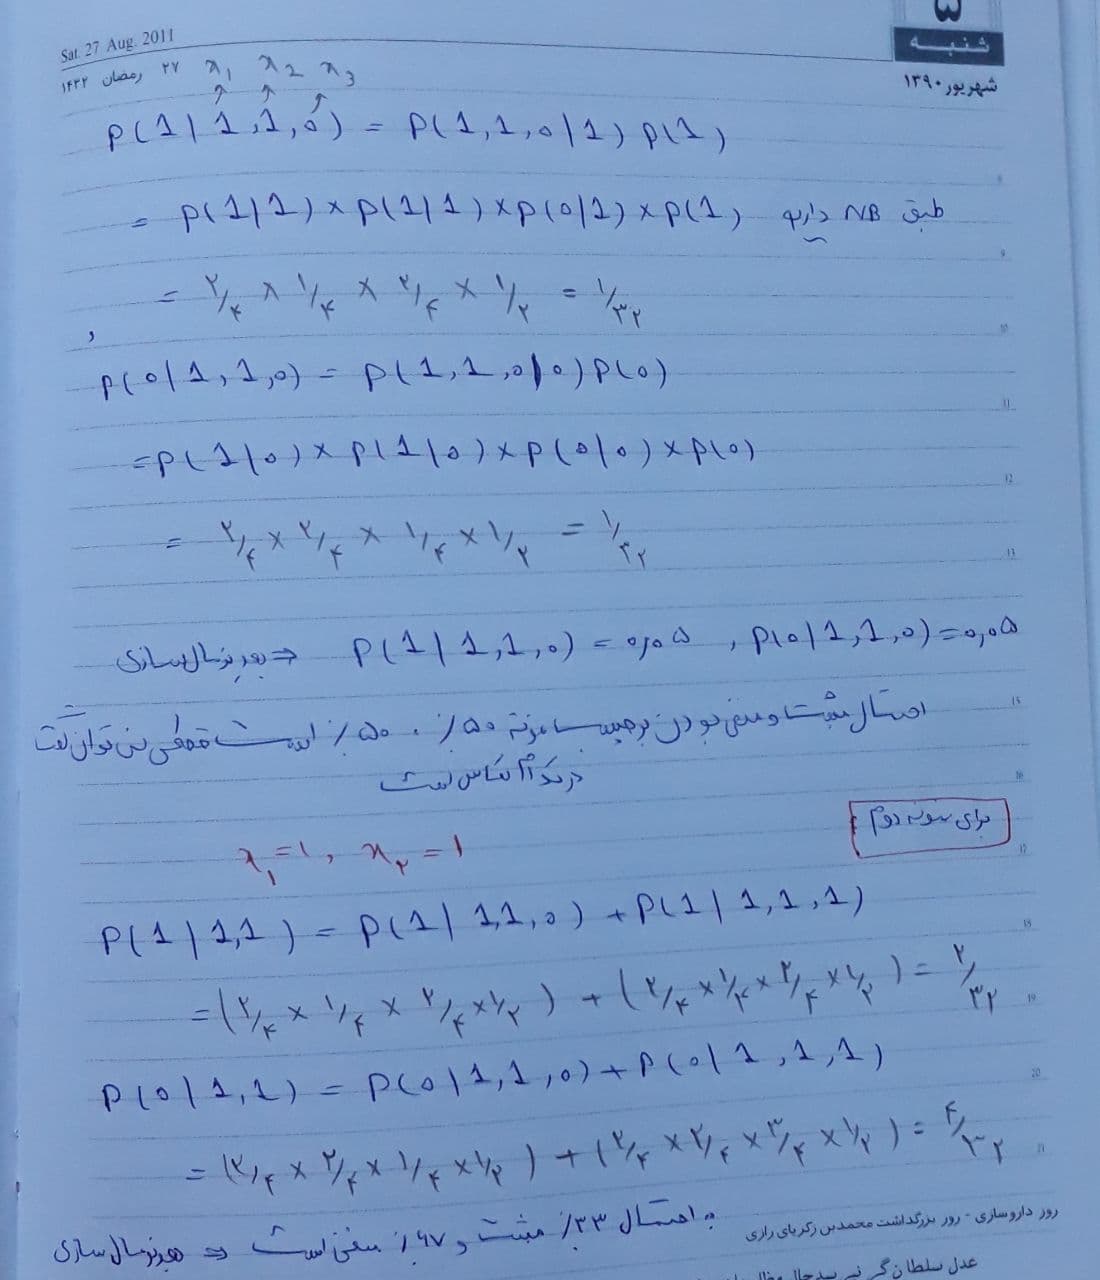 ۵
شنبه
Sat. 27 Aug. 2011
۲۷ رمضان ۱۴۳۲
شهریور ۱۳۹۰
x₁ x₂ x₃
P(1|1,1,0) = P(1,1,0|1) P(1)
= P(1|1) × P(1|1) × P(0|1) × P(1) طبق NB داریم
= ۲/۴ × ۱/۴ × ۲/۴ × ۱/۲ = ۱/۳۲
و
P(0|1,1,0) = P(1,1,0|0) P(0)
= P(1|0) × P(1|0) × P(0|0) × P(0)
= ۲/۴ × ۲/۴ × ۱/۴ × ۱/۲ = ۱/۳۲
بعد نرمال سازی ⇒ P(1|1,1,0) = ۰,۰۵ , P(0|1,1,0) = ۰,۰۵
احتمال مثبت و منفی بودن برچسب ۵۰٪ ، ۵۰٪ است قطعی نمی توان گفت
در کدام کلاس است
برای نمونه دوم
x₁ = ۱ , x₂ = ۱
P(1|1,1) = P(1|1,1,0) + P(1|1,1,1)
= (۲/۴ × ۱/۴ × ۲/۴ × ۱/۲) + (۲/۴ × ۱/۴ × ۲/۴ × ۱/۲) = ۲/۳۲
P(0|1,1) = P(0|1,1,0) + P(0|1,1,1)
= (۲/۴ × ۲/۴ × ۱/۴ × ۱/۲) + (۲/۴ × ۲/۴ × ۳/۴ × ۱/۲) = ۴/۳۲
بعد نرمال سازی ⇒ به احتمال ۳۳٪ مثبت و ۶۷٪ منفی است
روز داروسازی - روز بزرگداشت محمدبن زکریای رازی
9
10
11
12
13
15
16
17
18
19
20
21